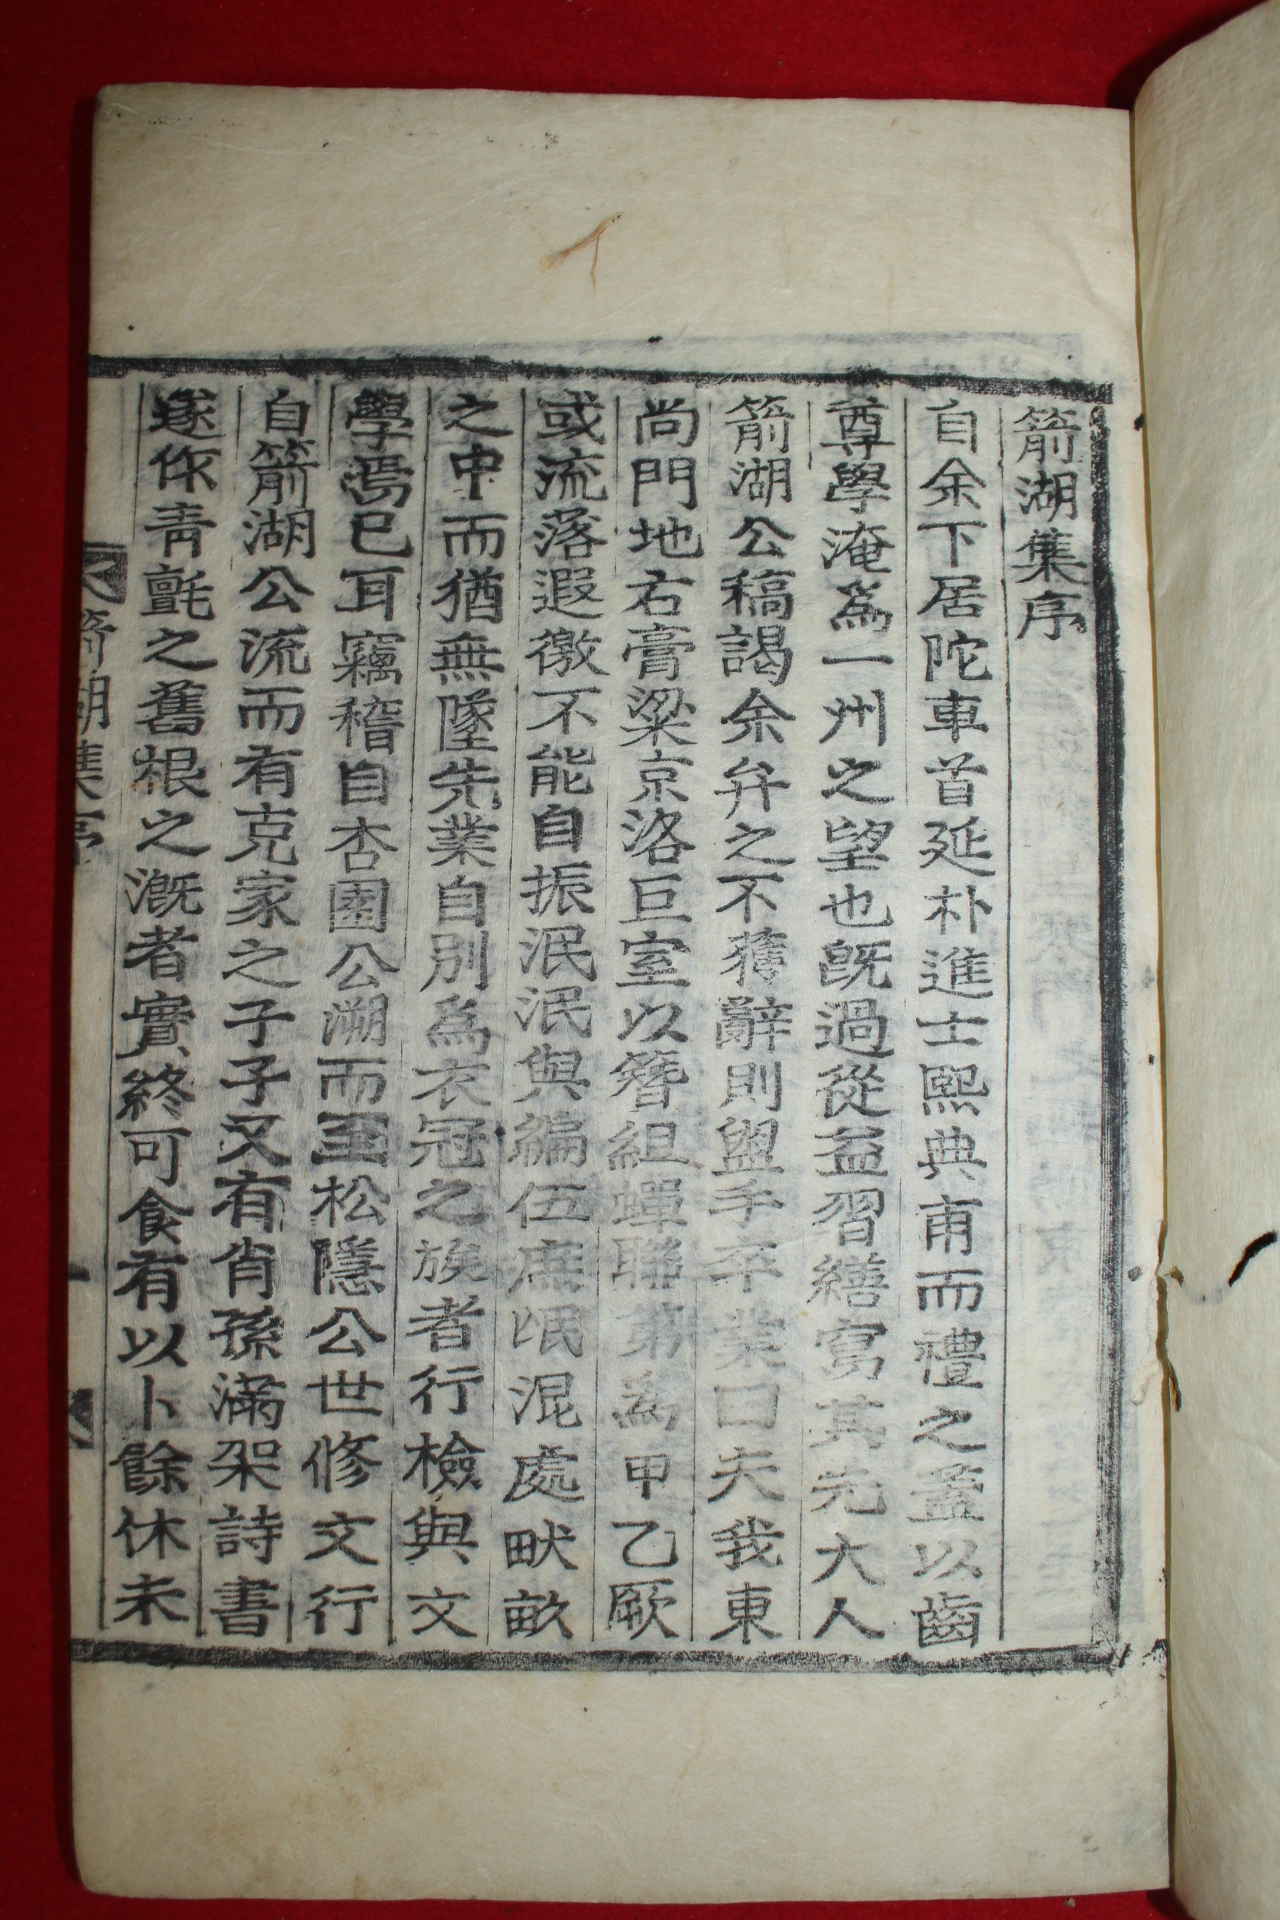 箭湖集序
自余下居陀車首延朴進士熙典甫而禮之盖以齒
尊學淹爲一州之望也旣過從益習繕寫其先大人
箭湖公稿謁余弁之不獲辭則盥手卒業曰夫我東
尚門地右膏粱京洛巨室以簪組蟬聯第爲甲乙厥
或流落遐徼不能自振泯泯與編伍庶氓混處畎畝
之中而猶無墜先業自別爲衣冠之族者行檢與文
學焉已耳竊稽自杏園公溯而至松隱公世修文行
自箭湖公流而有克家之子子又有肖孫滿架詩書
遂作青氈之舊根之漑者實終可食有以卜餘休未
箭湖集序